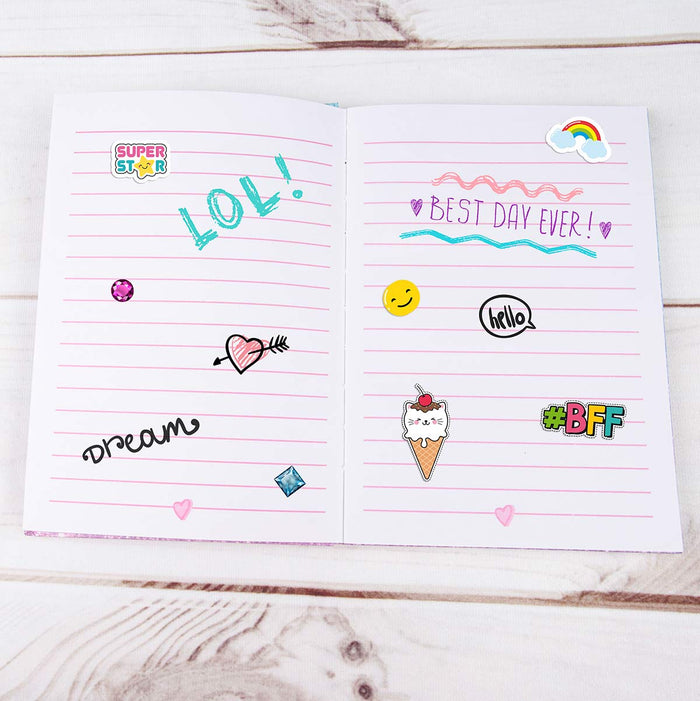 SUPER
STAR
LOL!
Dream
BEST DAY EVER!
hello
#BFF